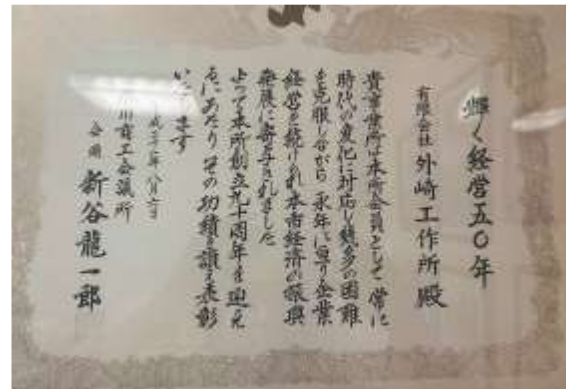 輝く経営五〇年
有限会社 外崎工作所 殿
貴事業所は本所会員として常に
時代の変化に対応し幾多の困難
を克服しながら永年に亘り企業
経営を続けられ本市経済の振興
発展に寄与されました
よって本所創立九十周年を迎え
るにあたりその功績を讃え表彰
いたします
年八月六日
川商工会議所
会頭 新谷龍一郎